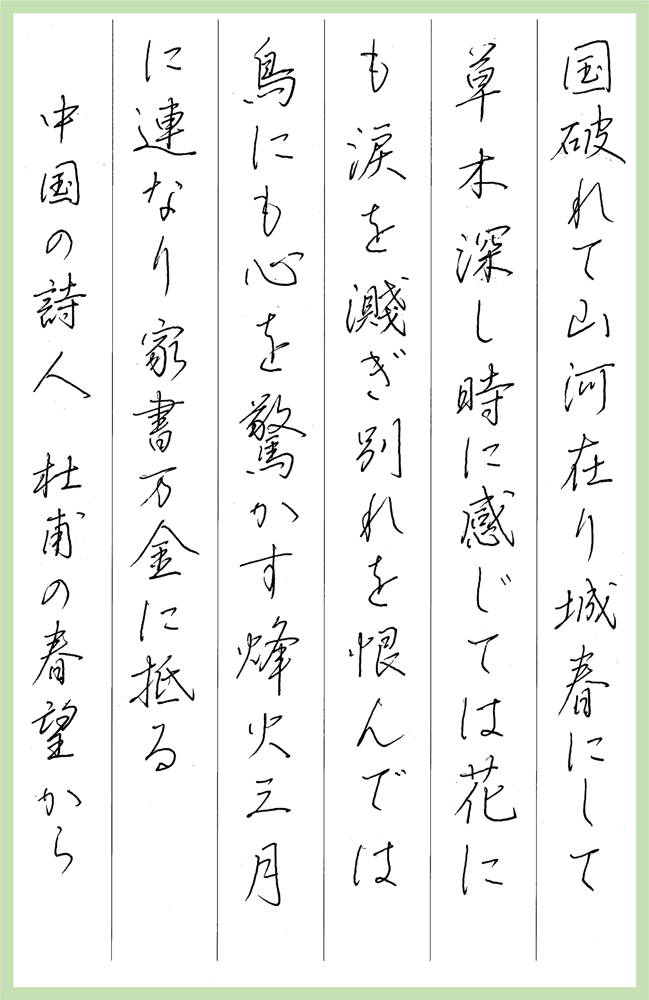 国破れて山河在り城春にして
草木深し時に感じては花に
も涙を濺ぎ別れを恨んでは
鳥にも心を驚かす烽火三月
に連なり家書万金に抵る
中国の詩人 杜甫の春望から